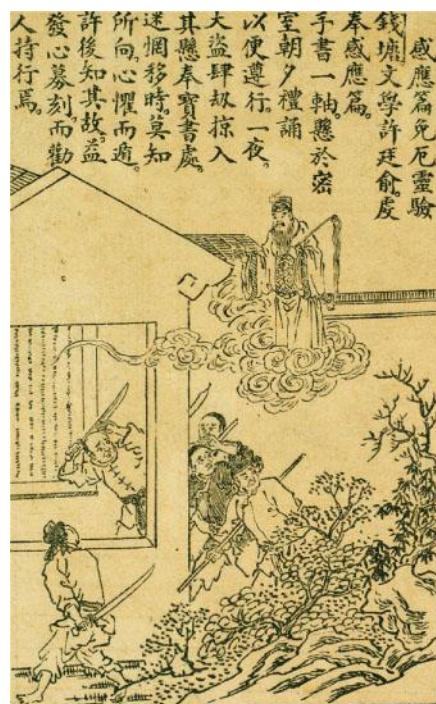 感應篇免厄靈驗
錢塘文學許廷俞。虔
奉感應篇。
手書一軸。懸於密
室。朝夕禮誦
以便遵行。一夜。
大盜肆刼掠。入
其懸奉寶書處。
迷惘移時。莫知
所向。心懼而遁。
許後知其故。益
發心募刻。而勸
人持行焉。